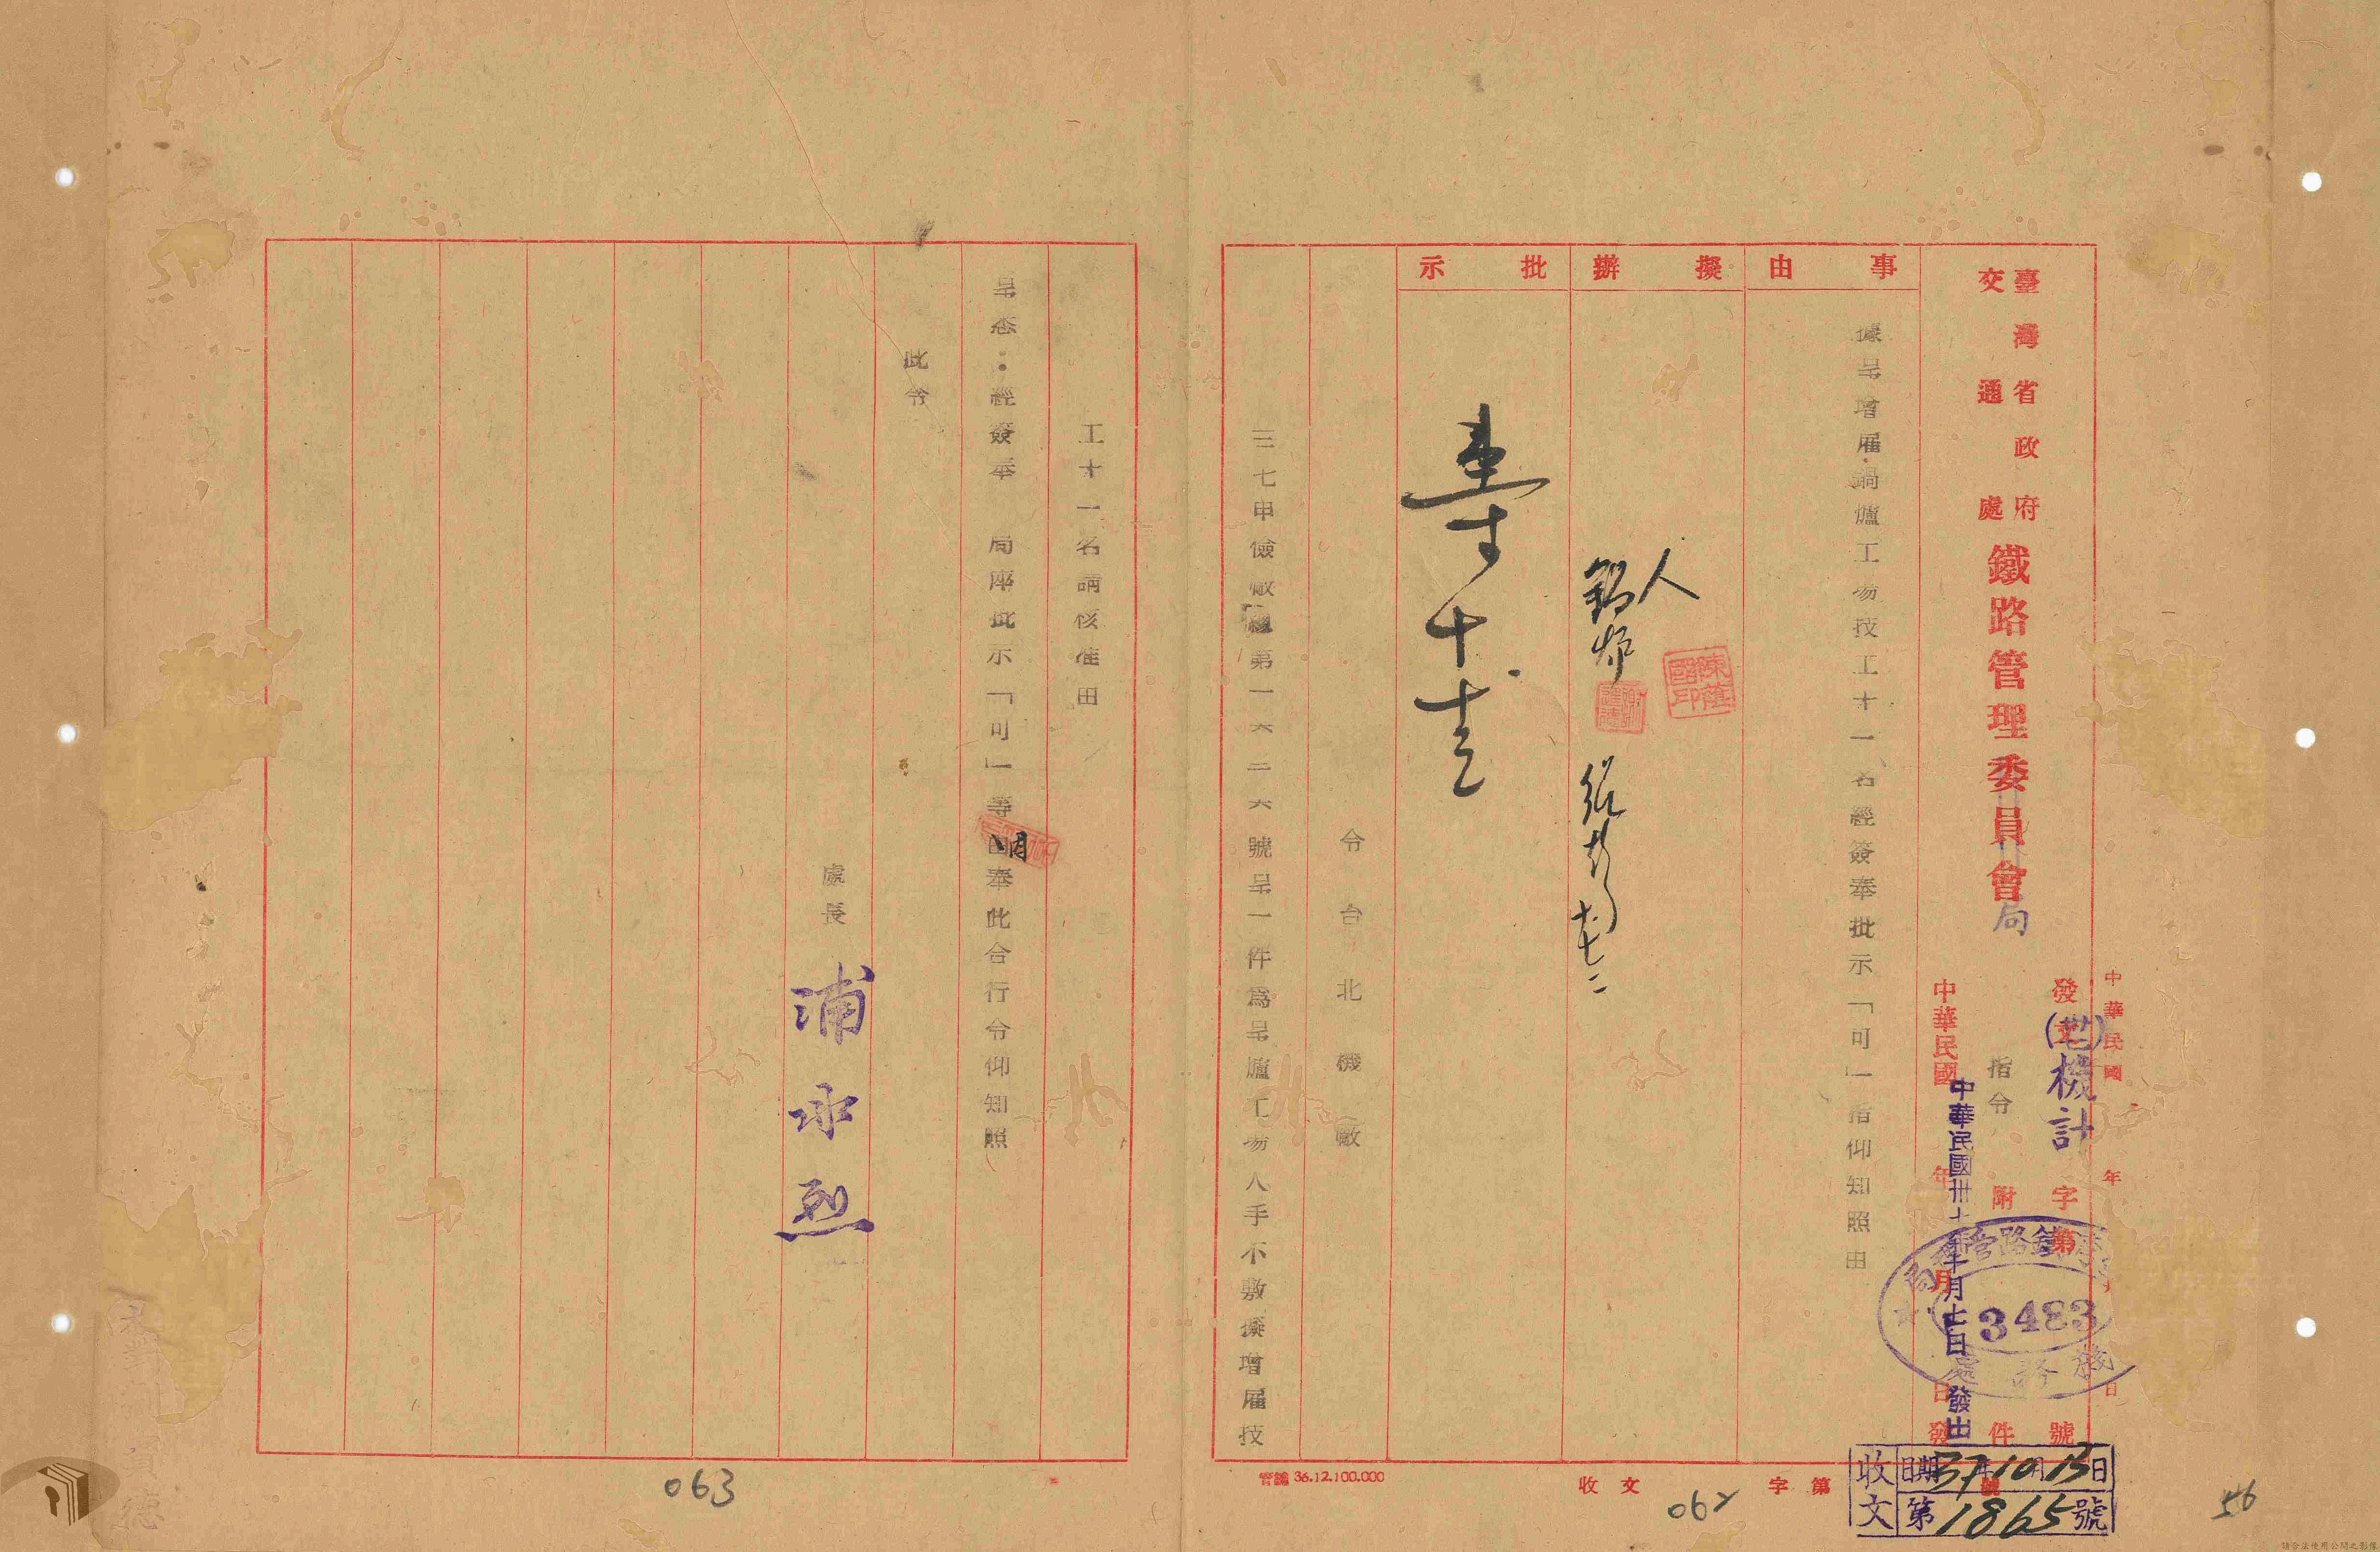 臺灣省政府
交通處
鐵路管理委員會
局
發文
(卅七)機計
字第
號
3483
指令
附件
中華民國
年
月
日
中華民國卅七年十月十二日發出
日發
事由
據呈增雇鍋爐工場技工十一名經簽奉批示「可」指仰知照由
擬辦
人
鍋爐
陳蔭國印
批示
令台北機廠
三七申儉廠極第一六二六號呈一件為呈爐工場人手不敷擬增雇技
工十一名請核准由
呈悉:經簽奉 局座批示「可」等因奉此合行令仰知照
此令
處長
浦永烈
收文
字第
號
收文
日期37年10月13日
第1865號
管鐵 36.12.100.000
062
063
56
請合法使用公開之影像